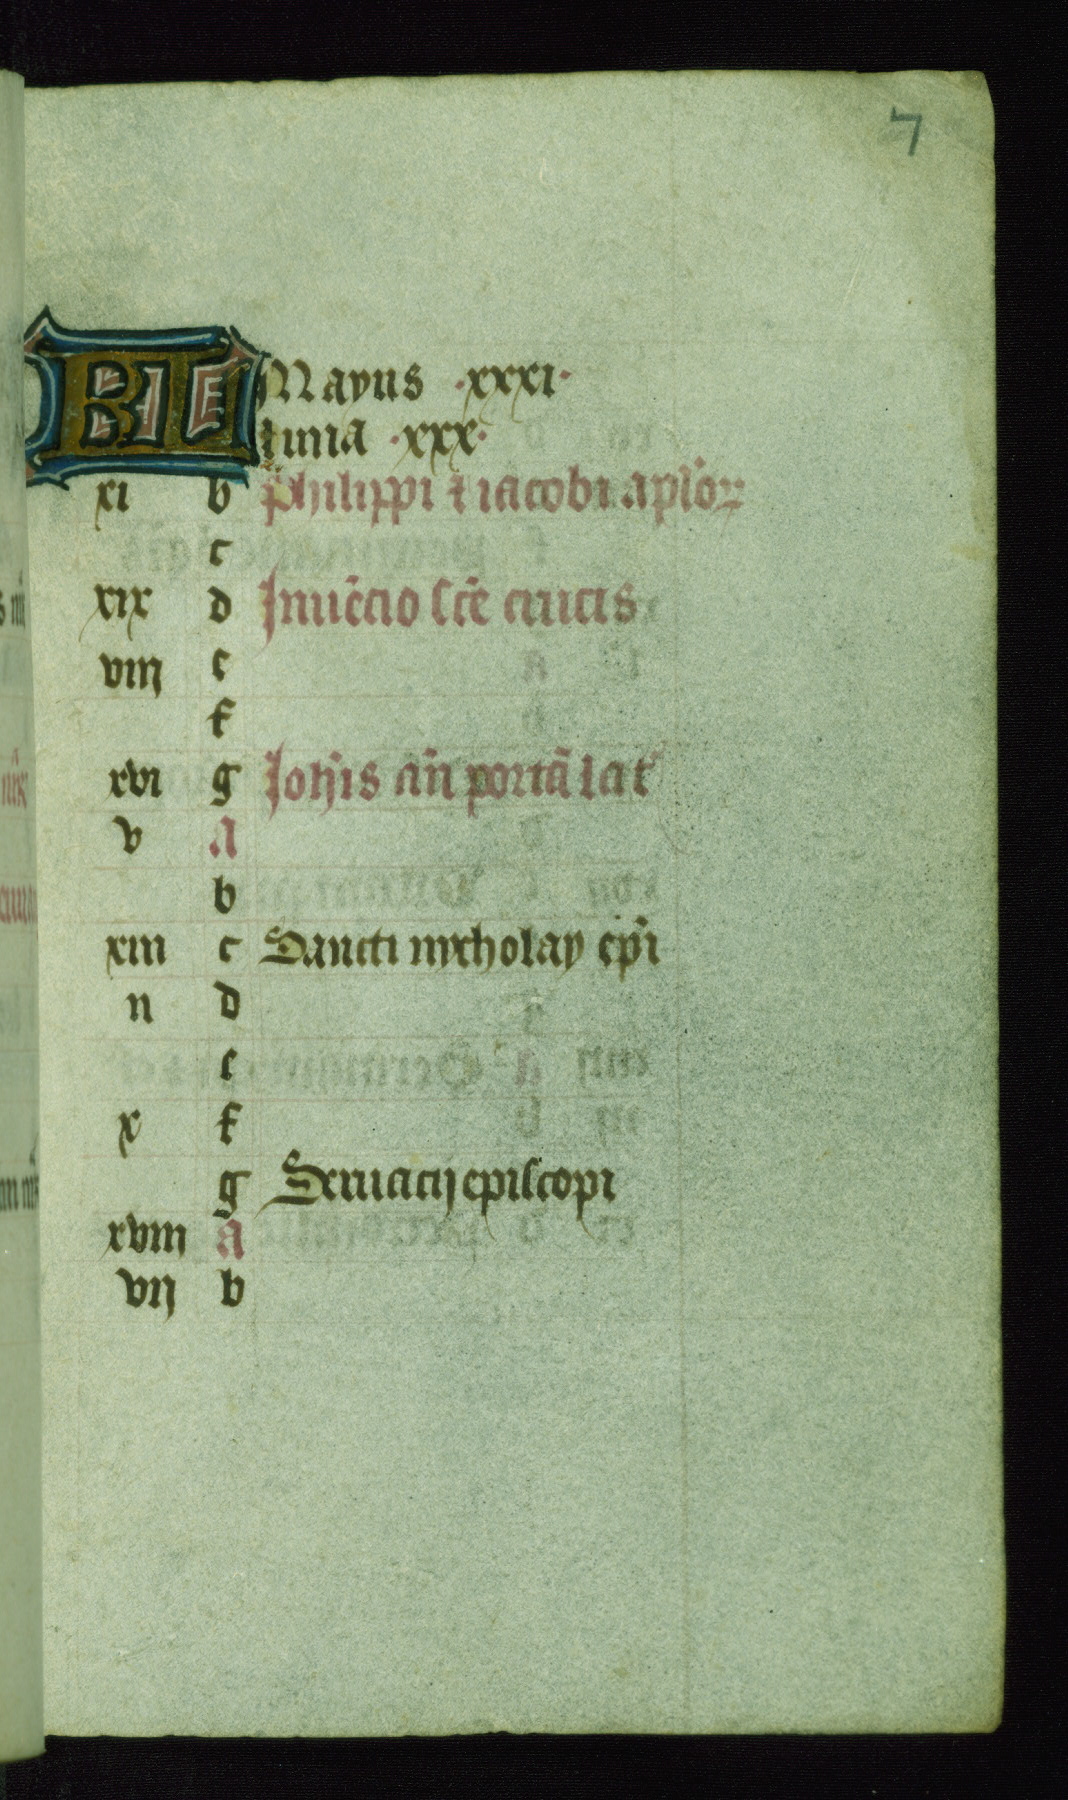 7
KL Mayus ·xxxi·
luna ·xxx·
xi b Philippi ⁊ iacobi aplōꝝ
c
xix d Inuēcio scē crucis
viij e
f
xvi g Joh̄is an̄ portā lat
v a
b
xiii c Sancti nycholay ep̄i
ii d
e
x f
g Seruacij episcopi
xviij a
vij b